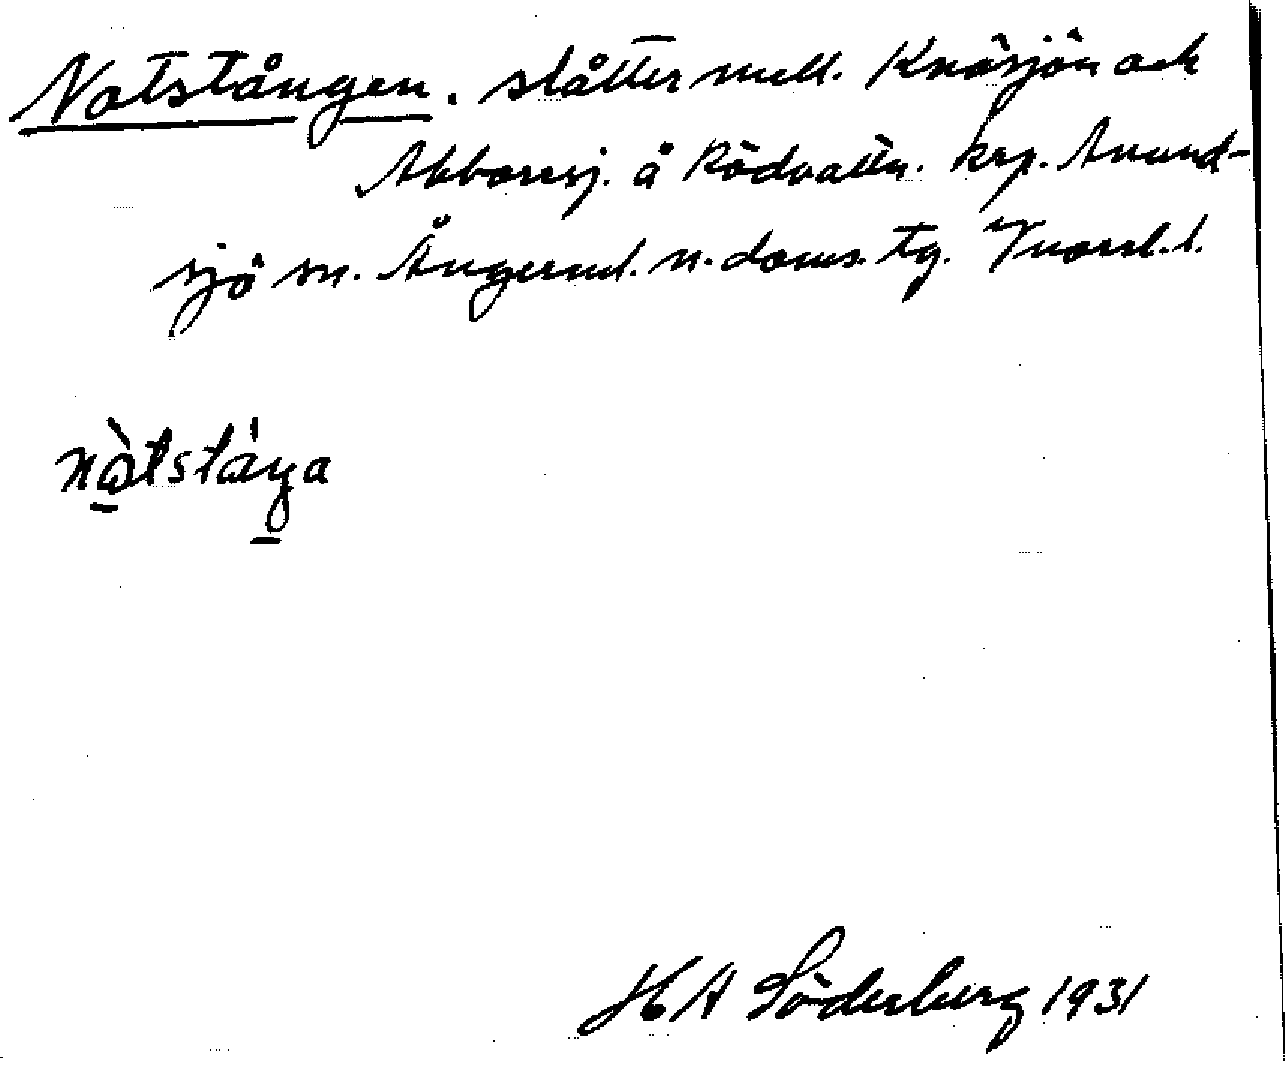 Notstången. slåtter mell. Knösjön och
Abborrsj. å Rödvattn. krp. Anund-
sjö sn. Ångerml. n. doms. tg. Vnorrl. l.
nòtstáŋa
H A Söderberg 1931